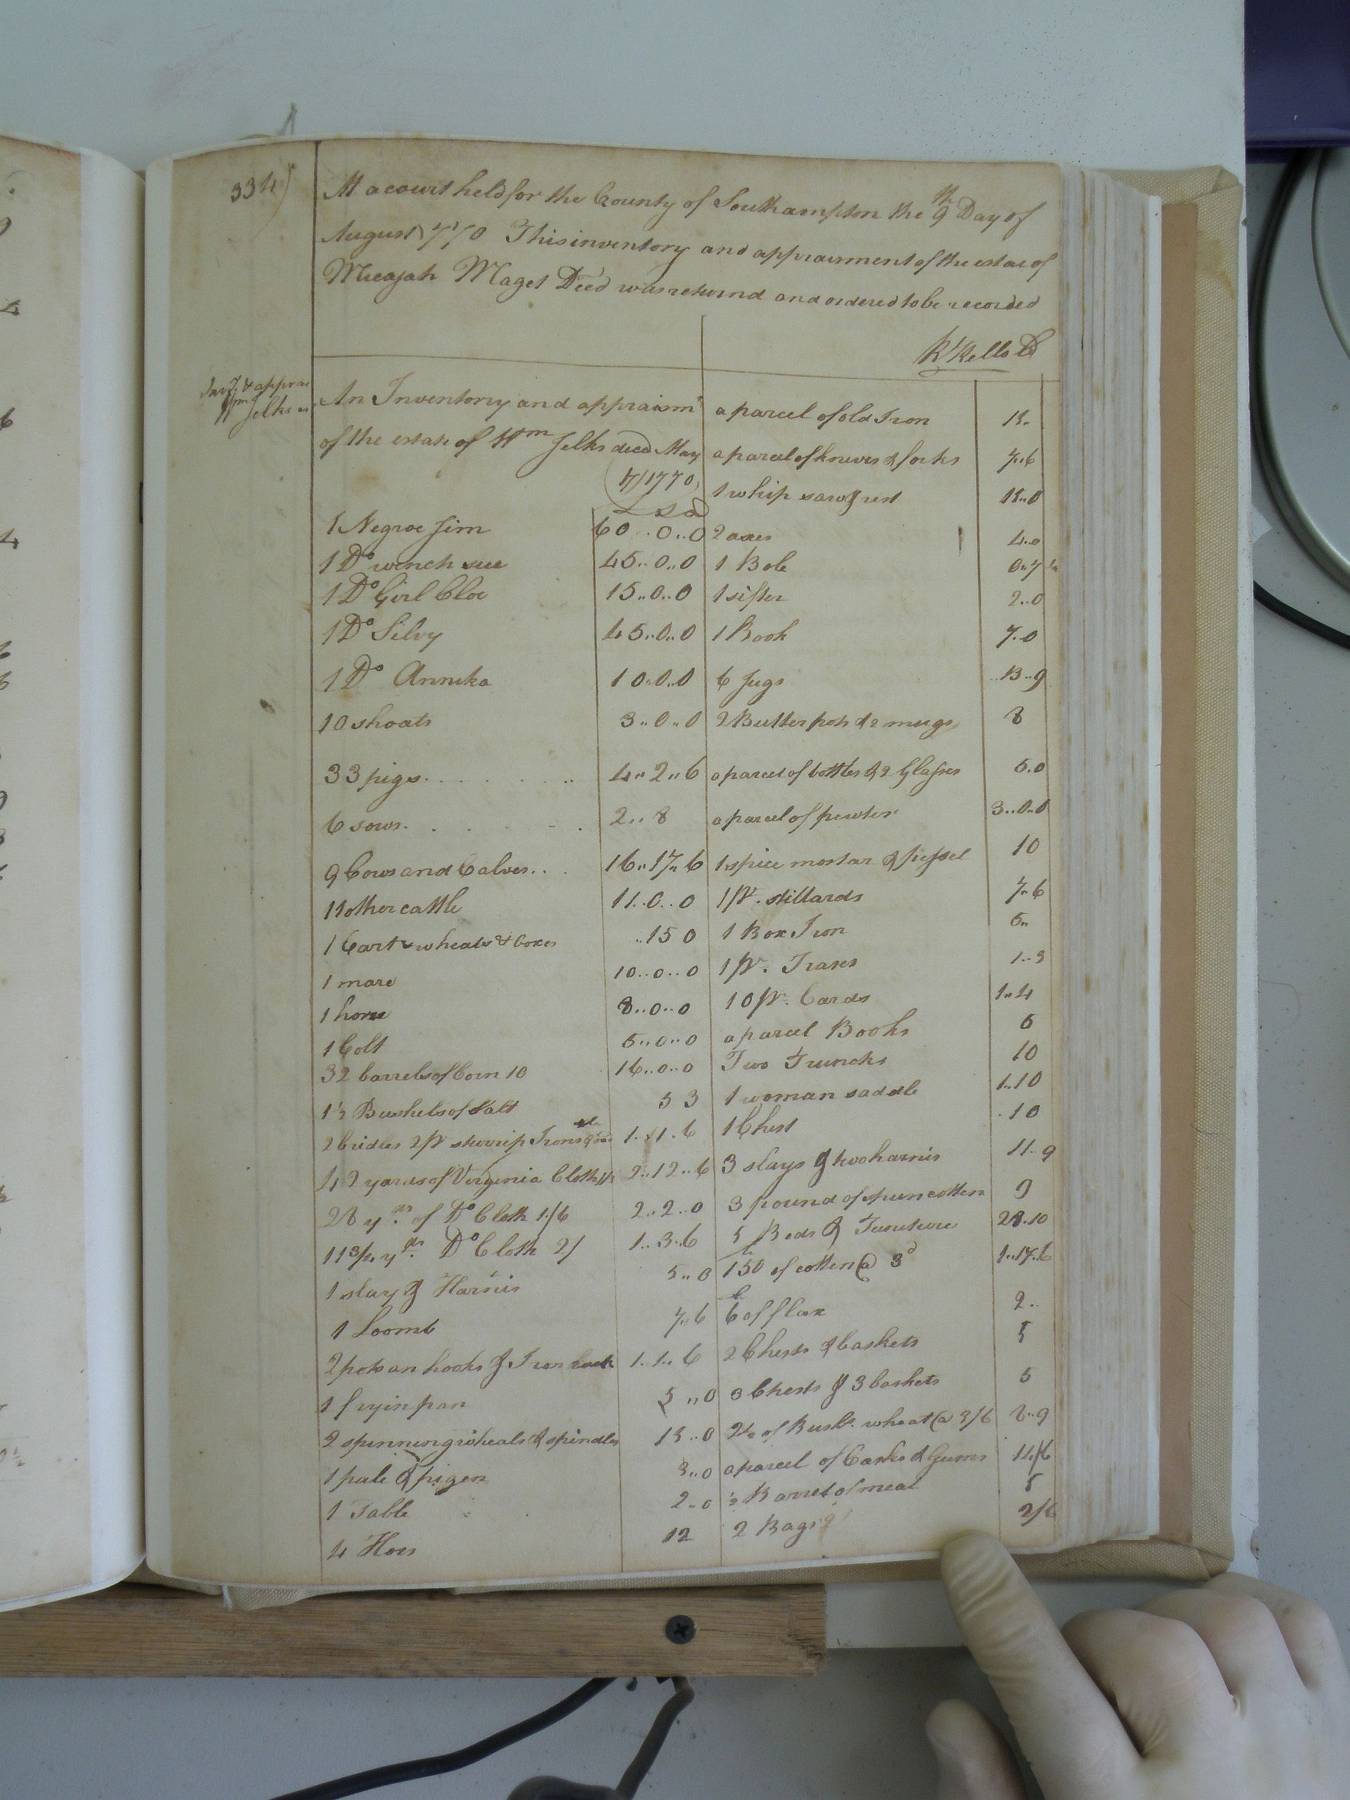 334)
At a court held for the County of Southampton the 9th Day of
August 1770 This inventory and appraisment of the estae of
Micajah Maget Deed was returnd and ordered to be recorded
Rd Kello
Invt & apprai
Wm Jelks
An Inventory and appraismt
of the estate of Wm Jelks decd May
1770
£ S d
1 Negroe Jim 60..0..0
1 Do wench sue 45..0..0
1 Do Girl Cloe 15..0..0
1 Do Silvy 45..0..0
1 Do Annika 10..0..0
10 shoats 3..0..0
33 pigs 4..2..6
6 sows 2..8
9 Cows and Calves 16..17..6
11 other cattle 11..0..0
1 Cart wheals & boxes ..15 0
1 mare 10..0..0
1 horse 8..0..0
1 Colt 5..0..0
32 barrels of Corn 10 16..0..0
1½ Bushels of Salt 5 3
2 bridles 2 pr stirrip Irons 1..1..6
42 yards of Virginia Cloth 2..12..6
28 yds of Do Cloth 1/6 2..2..0
11 3/4 yds Do Cloth 2/ 1..3..6
1 slay & Harnis 5..0
1 Loomb 7..6
2 pots an hooks & Iron 1..1..6
1 fryin pan 5..0
2 spinning wheals & spindles 15..0
1 pale & pigen 3..0
1 Table 2..0
4 Hoes 12
a parcel of old Iron 15.
a parcel of knives & forks 7..6
1 whip saw & rest 15..0
2 axes 4..0
1 0..7½
1 sifter 2..0
1 Book 7..0
6 Jugs 13..9
2 Butter pots & 2 mugs 8
a parcel of bottles & 2 Glasses 5.0
a parcel of pewter 3..0..0
1 spice mortar & 10
1 pr. stillards 7..6
1 Box Iron 5..
1 pr. 1..3
10 pr. Cards 1..4
a parcel Books 5
Two Truncks 10
1 woman saddle 1..10
1 Chest 10
3 slays & two harnis 11..9
3 pound of spun cotten 9
5 Beds & Funiture 28..10
150 of cotten @ 3d 1..17..6
6 of flax 2..
2 Chests & baskets 5
3 Chests & 3 baskets 5
2½ of Bush. wheat @ 3/6 8..9
a parcel of Casks & Gums 14/6
½ Barrel of meal 5
2 Bags 2/6